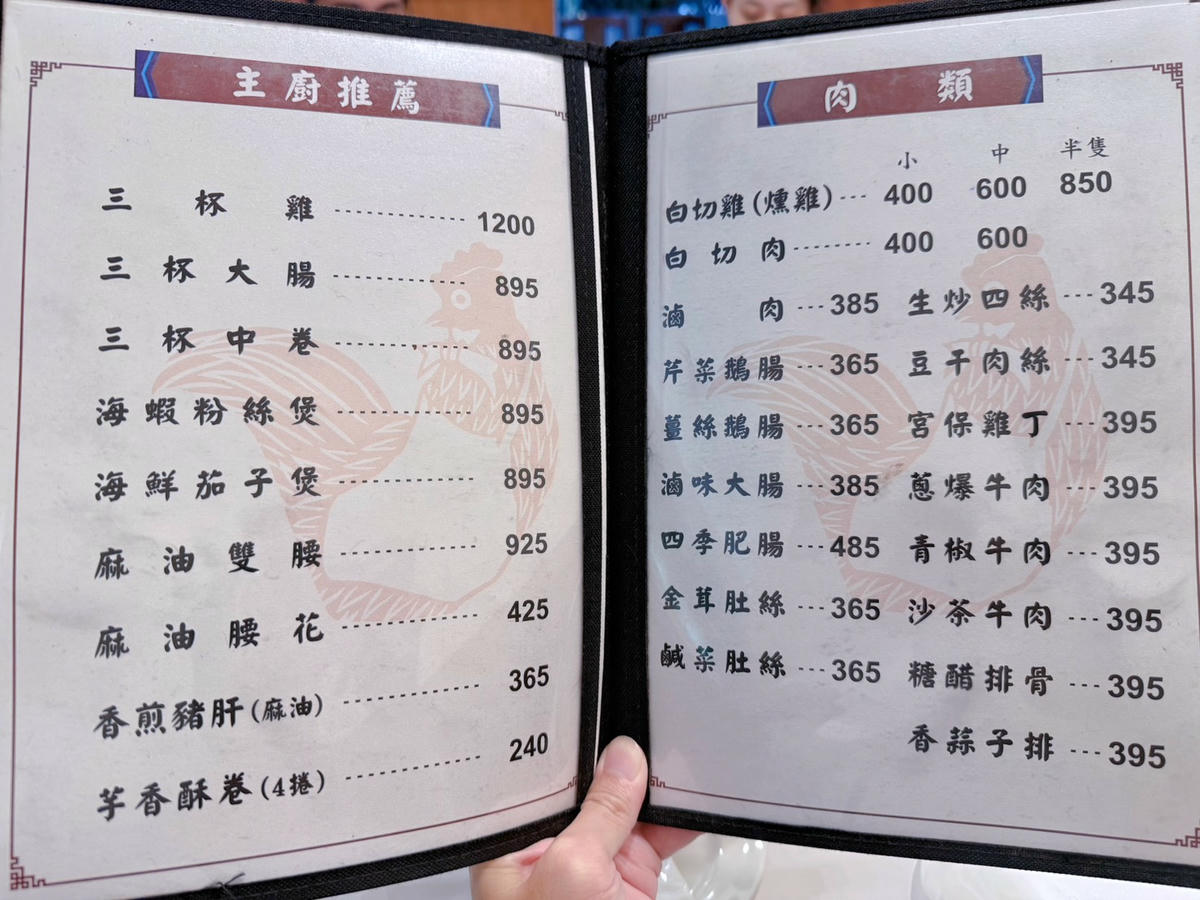 主廚推薦
三杯雞 1200
三杯大腸 895
三杯中卷 895
海蝦粉絲煲 895
海鮮茄子煲 895
麻油雙腰 925
麻油腰花 425
香煎豬肝(麻油) 365
芋香酥卷(4捲) 240
肉類
小 中 半隻
白切雞(燻雞) 400 600 850
白切肉 400 600
滷肉 385 生炒四絲 345
芹菜鵝腸 365 豆干肉絲 345
薑絲鵝腸 365 宮保雞丁 395
滷味大腸 385 蔥爆牛肉 395
四季肥腸 485 青椒牛肉 395
金茸肚絲 365 沙茶牛肉 395
鹹菜肚絲 365 糖醋排骨 395
香蒜子排 395